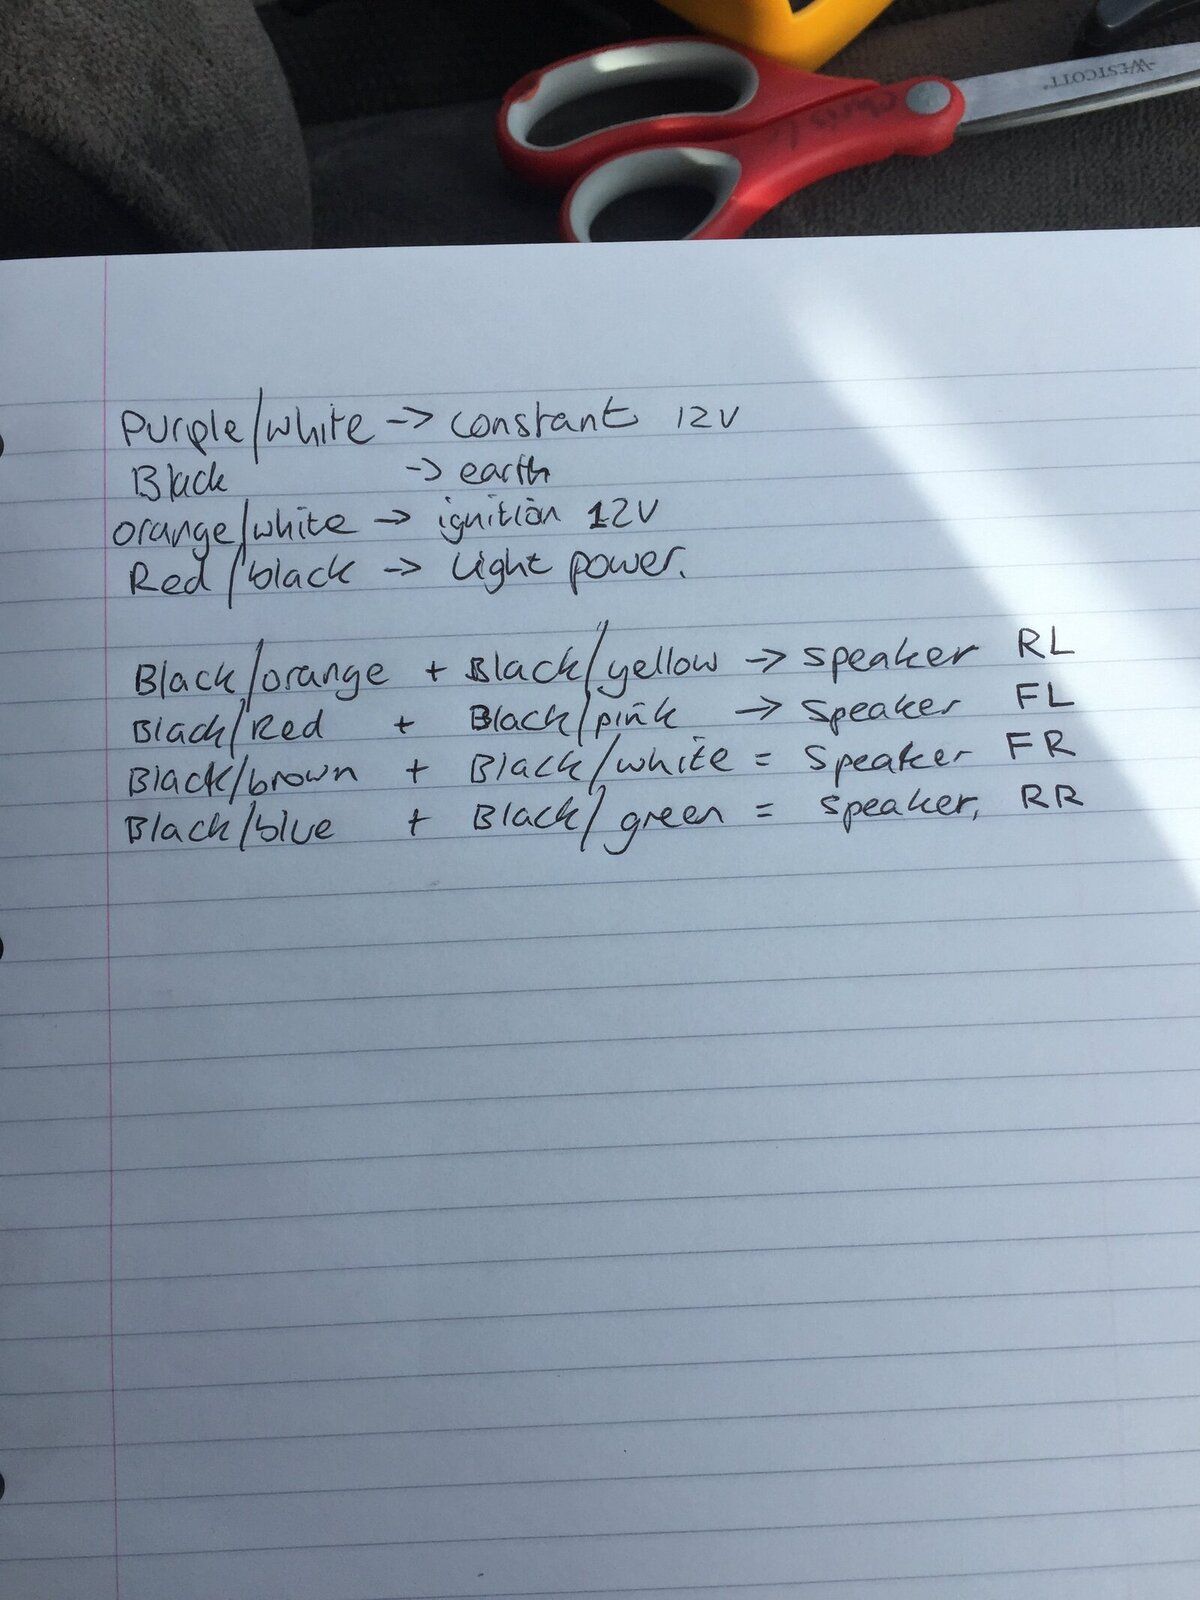 WESTCOTT
Purple/white -> constant 12V
Black -> earth
orange/white -> ignition 12V
Red/black -> Light power.
Black/orange + Black/yellow -> speaker RL
Black/Red + Black/pink -> speaker FL
Black/brown + Black/white = Speaker FR
Black/blue + Black/green = speaker, RR